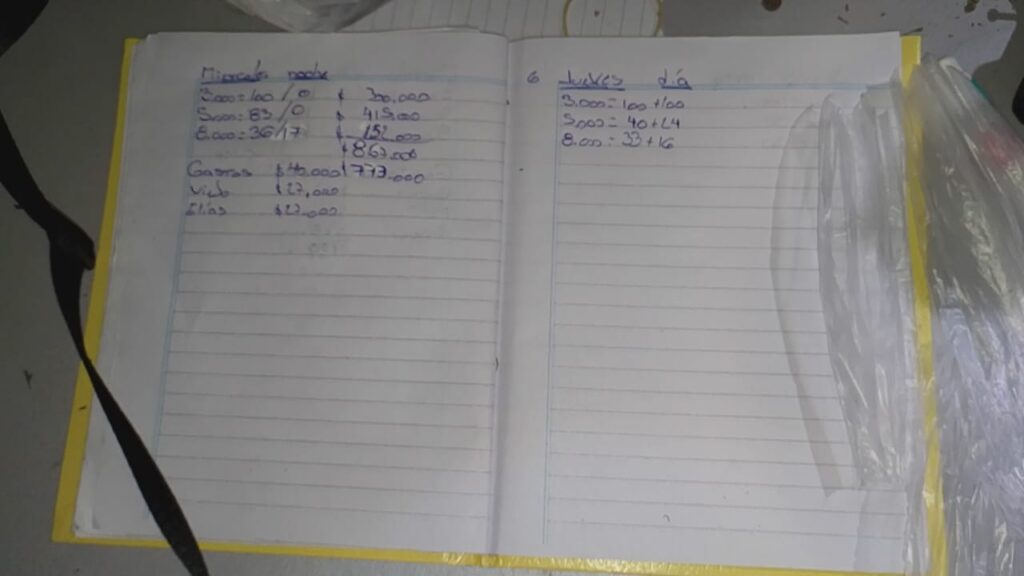 Miercoles noche
3.000=100/0 $ 300.000
5.000=83/0 $ 415.000
8.000=36/17 $ 152.000
$867.000
Gastos $40.000 $773.000
$27.000
Elias $27.000
6 Jueves día
3.000=100+100
5.000=40+24
8.000=33+16